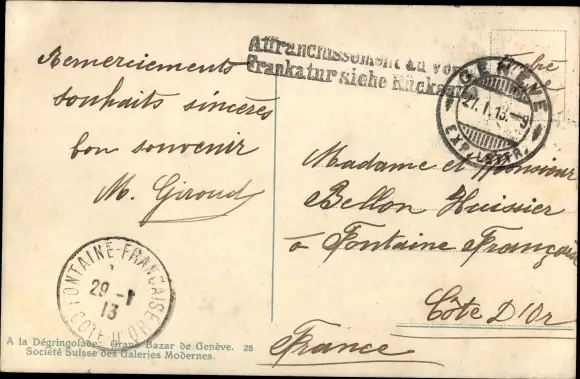 Remerciements
souhaits sincères
bon souvenir
M. Giroud
Affranchissement au verso
Frankatur siehe Rückseite
GENÈVE
27. I. 13. —9
EXP. LETTR.
Timbre
Madame et Monsieur
Bellon Huissier
à Fontaine Française
Côte D'Or
France
FONTAINE-FRANÇAISE
29 -1
13
COTE D'OR
A la Dégringolade. Grand Bazar de Genève. 26
Société Suisse des Galeries Modernes.